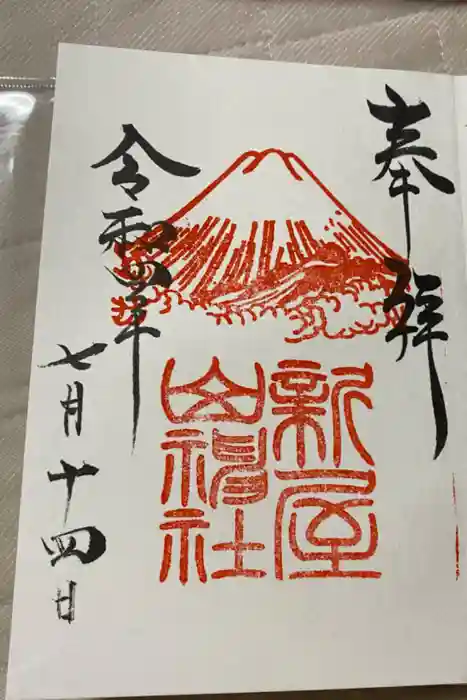 奉拝
新屋
山神社
令和四年
七月十四日